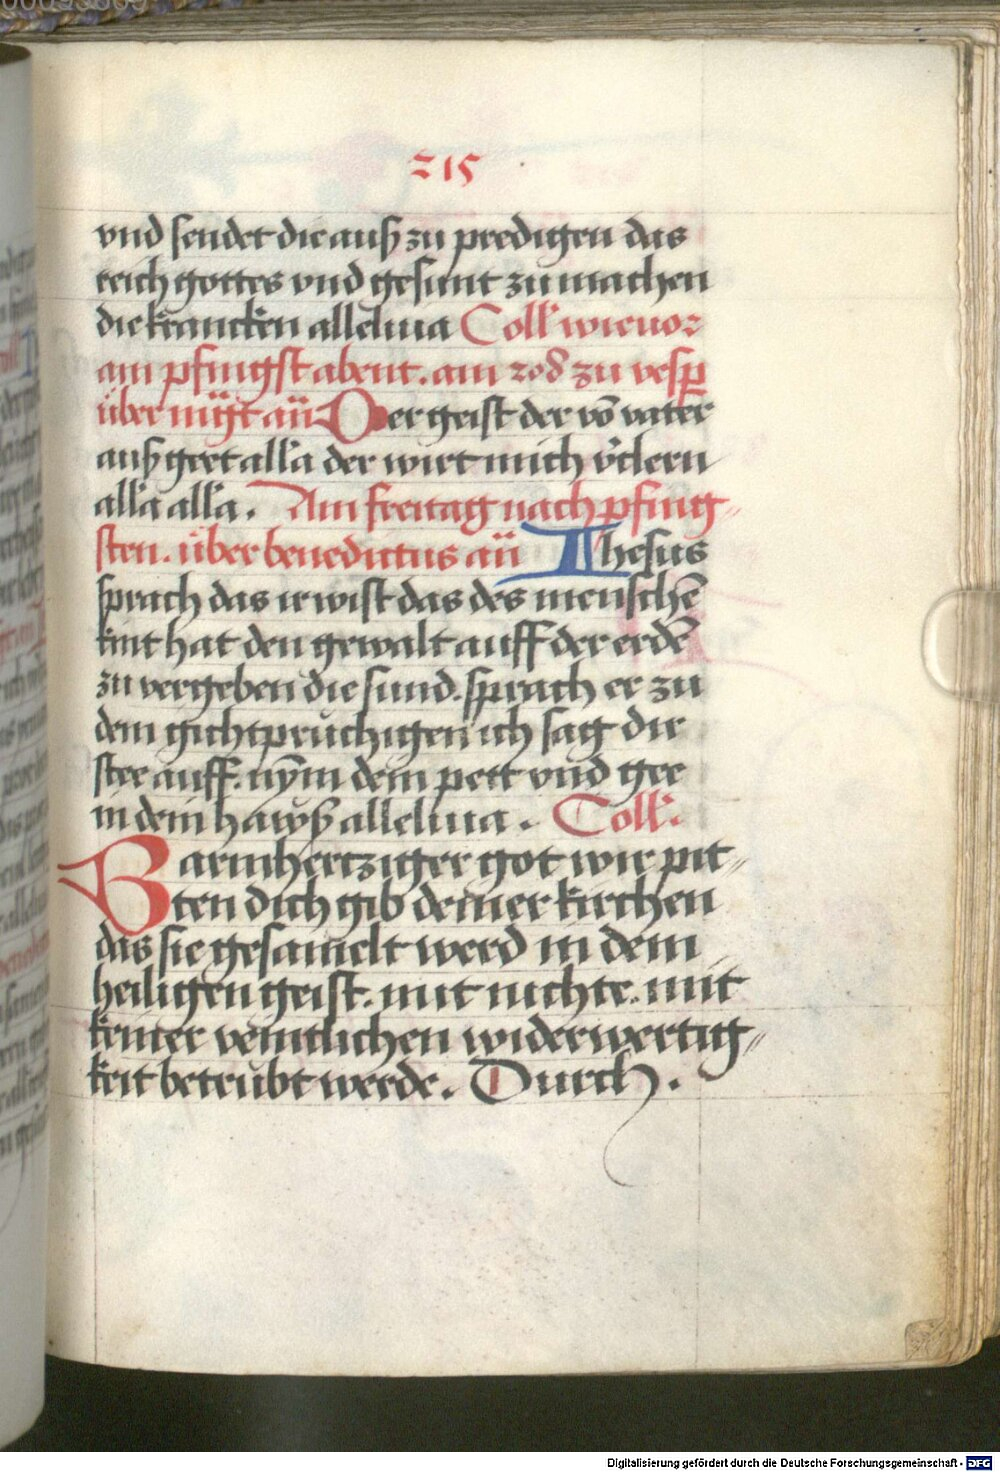 215
vnd sendet die auß zu predigen das
reich gottes vnd gesunt zu machen
die krancken alleluia Coll' wie vor
am pfingst abent. am 208 zu vesp
über mgt an̄ Der geist der vō vater
auß geet all'a der wirt mich v'clern
all'a all'a. Am freitag nach pfing„
sten. über benedictus an̄ Ihesus
sprach das ir wist das des menschē
kint hat den gewalt auff der erdē
zu vergeben die sund. sprach er zu
dem gichtprüchigen ich sag dir
stee auff. nym dein pett vnd gee
in dein hawß alleluia. Coll'.
Barmhertziger got wir pit„
ten dich gib deiner kirchen
das sie gesamelt werd in dem
heiligen geist. mit nichte. mit
keiner veintlichen widerwertig„
keit betrübt werde. Durch.
Digitalisierung gefördert durch die Deutsche Forschungsgemeinschaft - DFG